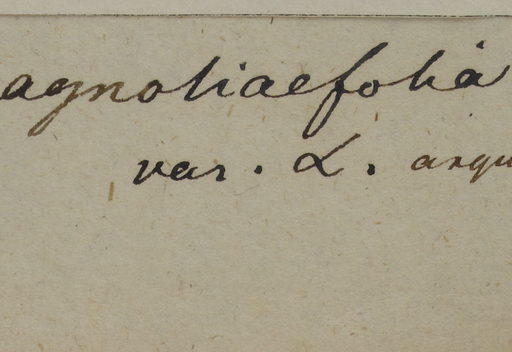 agnoliaefolia
var. α. argu